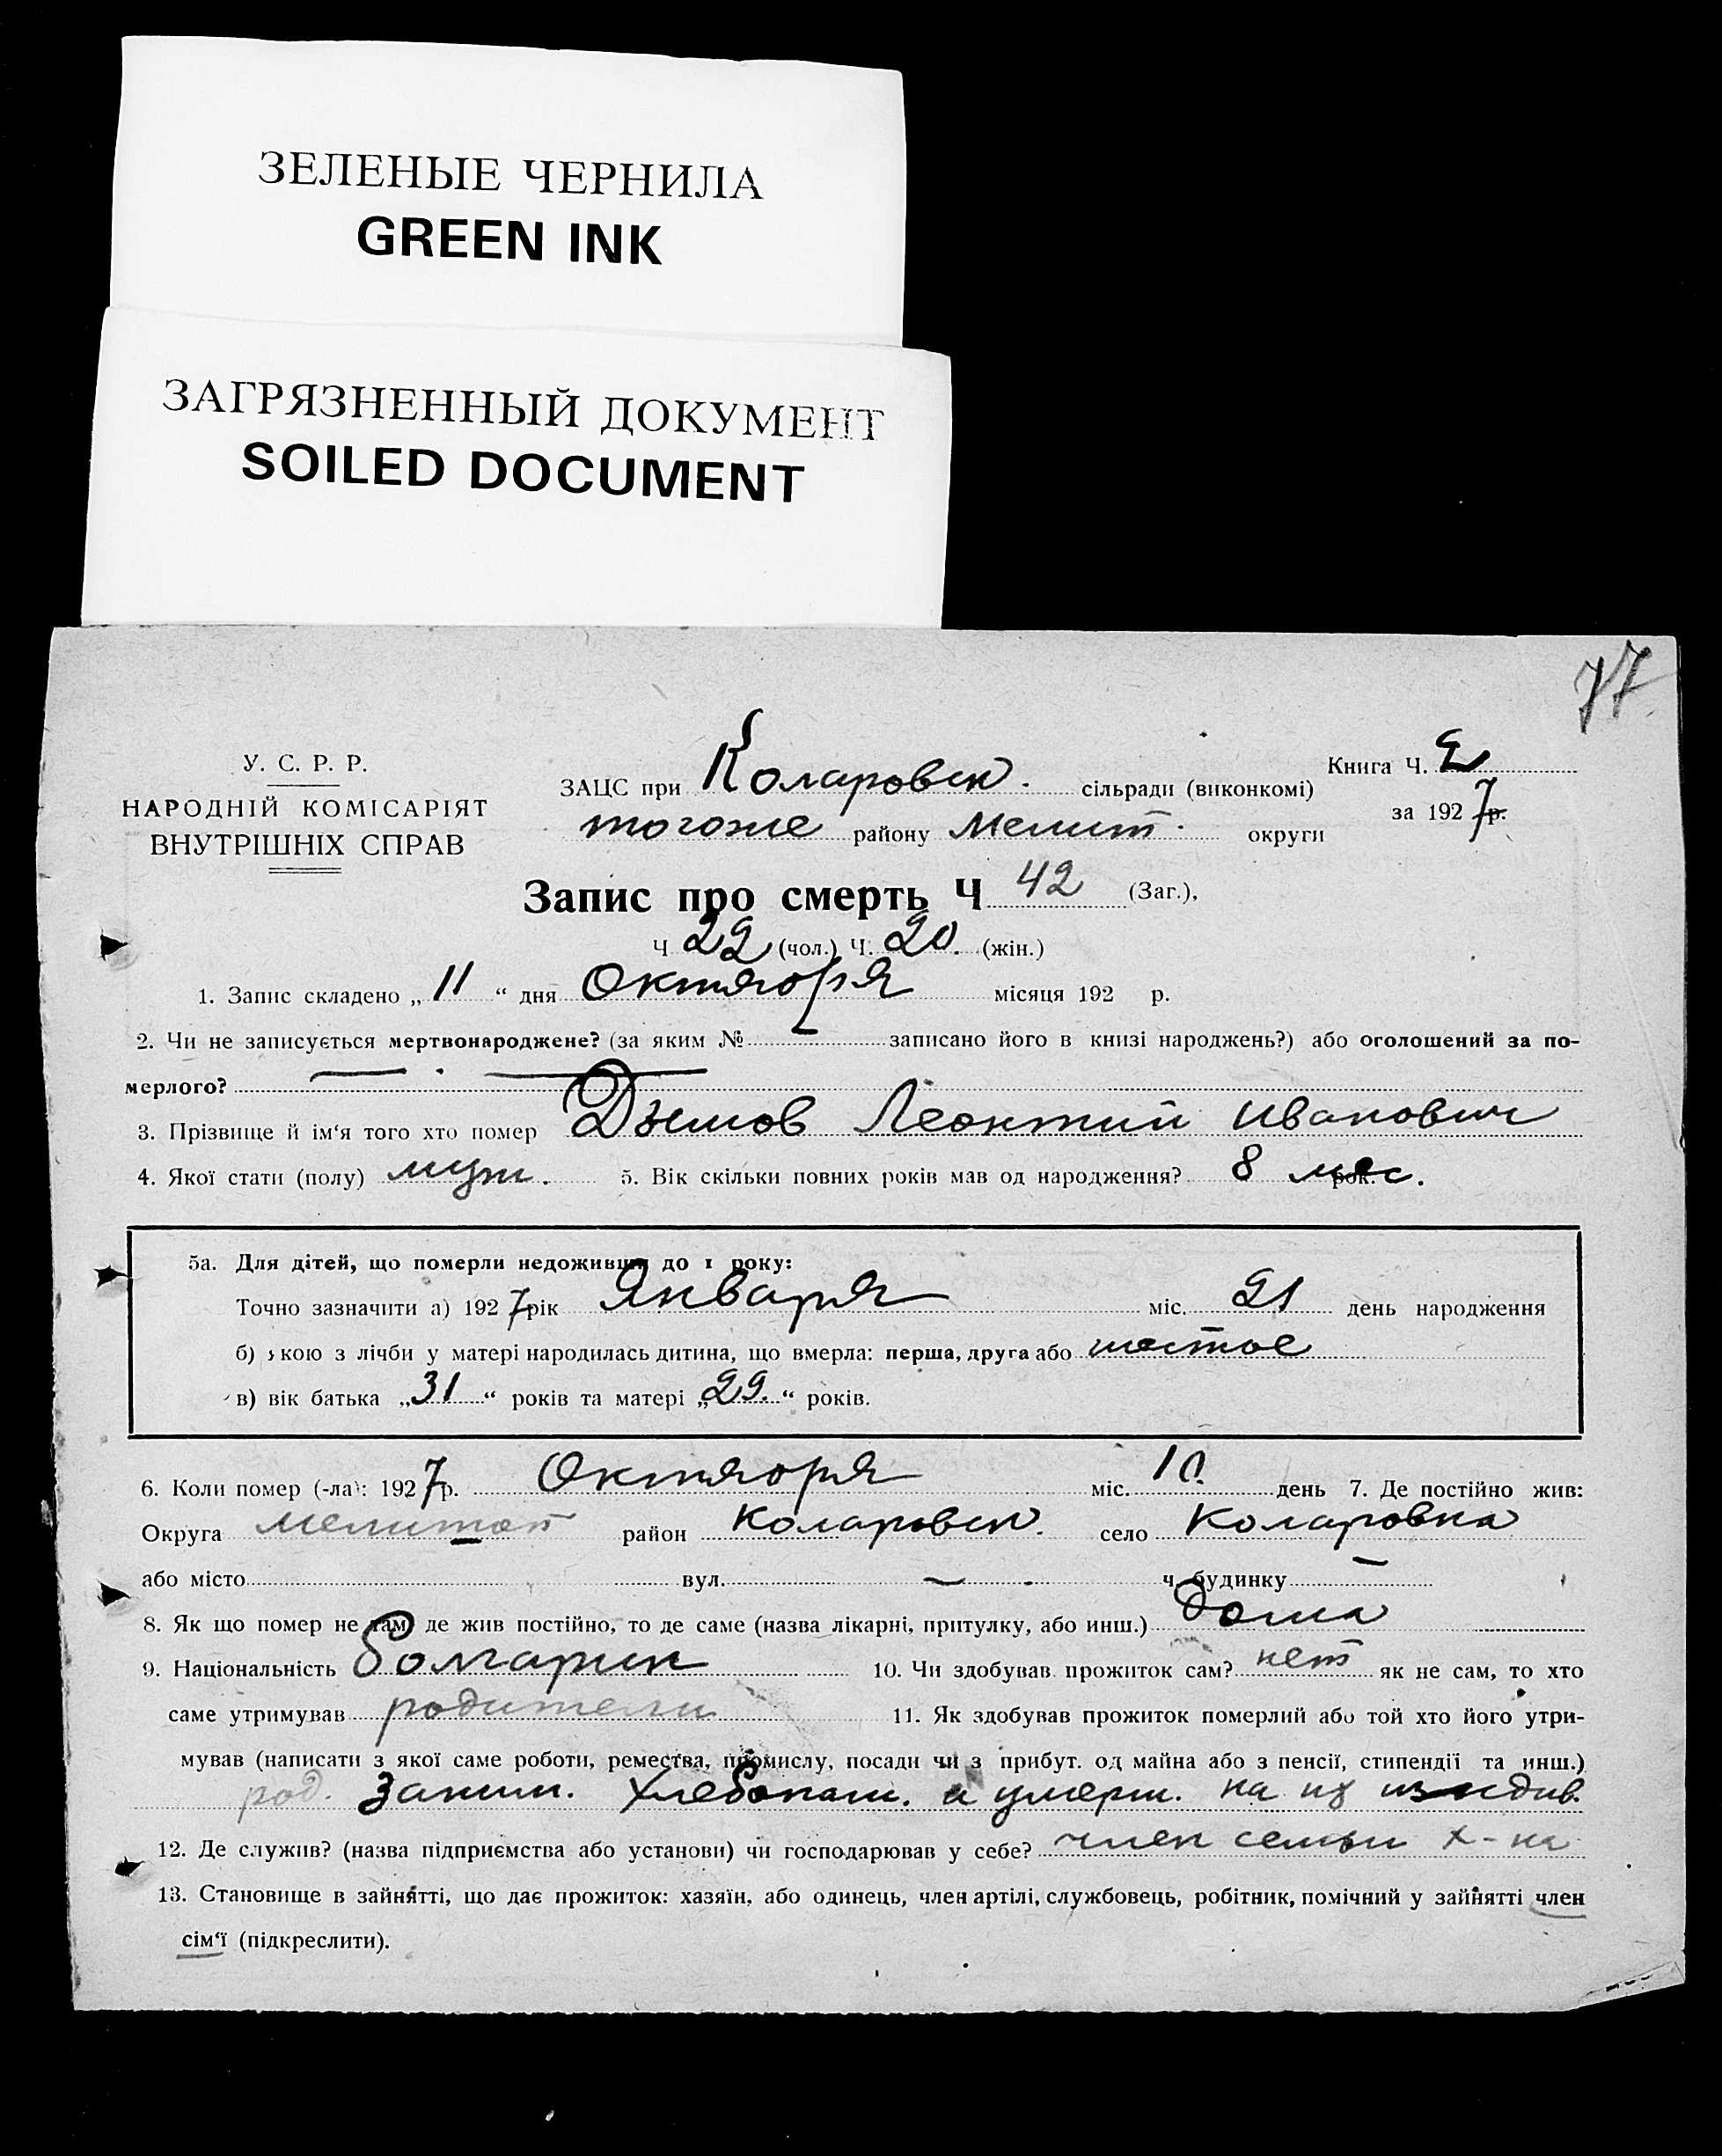 ЗЕЛЕНЫЕ ЧЕРНИЛА
GREEN INK
ЗАГРЯЗНЕННЫЙ ДОКУМЕНТ
SOILED DOCUMENT
77
У. С. Р. Р.
НАРОДНІЙ КОМІСАРІЯТ
ВНУТРІШНІХ СПРАВ
ЗАЦС при Коларовск. сільради (виконкомі)
тогоже району Мелит. округи
Книга Ч. 2
за 1927 р.
Запис про смерть Ч 42 (Заг.),
Ч 22 (чол.) Ч. 20. (жін.)
1. Запис складено „ 11 “ дня Октября місяця 192 р.
2. Чи не записується мертвонароджене? (за яким № — записано його в книзі народжень?) або оголошений за по-
мерлого? — . —
3. Прізвище й ім‘я того хто помер Дымов Леонтий Иванович
4. Якої стати (полу) муж. 5. Вік скільки повних років мав од народження? 8 мес. рок.
5а. Для дітей, що померли недоживши до 1 року:
Точно зазначити а) 1927 рік Января міс. 21 день народження
б) якою з лічби у матері народилась дитина, що вмерла: перша, друга або шестое
в) вік батька „ 31 “ років та матері „ 29. “ років.
6. Коли помер (-ла): 1927 р. Октября міс. 10. день 7. Де постійно жив:
Округа Мелитоп район Коларовск. село Коларовка
або місто вул. — . ч. будинку —
8. Як що помер не там, де жив постійно, то де саме (назва лікарні, притулку, або инш.) дома
9. Національність болгарин 10. Чи здобував прожиток сам? нет як не сам, то хто
саме утримував родители 11. Як здобував прожиток померлий або той хто його утри-
мував (написати з якої саме роботи, ремества, промислу, посади чи з прибут. од майна або з пенсії, стипендії та инш.)
род. Заним. хлебопаш. а умерш. на их иждив.
12. Де служив? (назва підприємства або установи) чи господарював у себе? член семьи х-на
13. Становище в зайнятті, що дає прожиток: хазяїн, або одинець, член артілі, службовець, робітник, помічний у зайнятті член
сім‘ї (підкреслити).